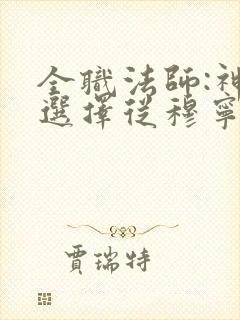 全職法師:神
選擇從穆寧
賈瑞特